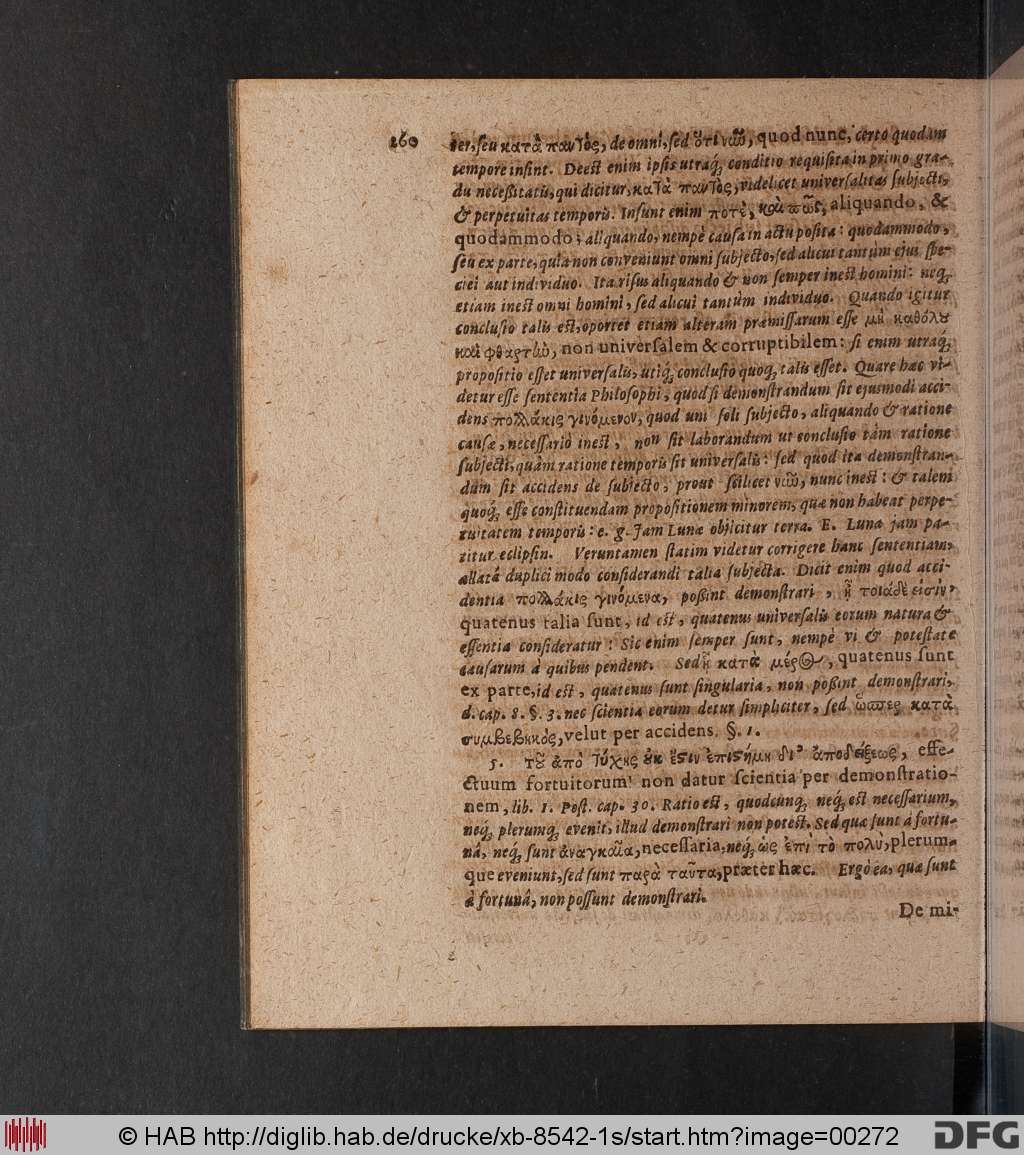 260
per, seu κατὰ παντὸς, de omni, sed ὅτι νῦν, quod nunc, certo quodam
tempore insint. Deest enim ipsis utraq; conditio requisita in primo gra-
du necessitatis, qui dicitur, κατὰ παντὸς, videlicet universalitas subjecti,
& perpetuitas temporis. Insunt enim ποτὲ, καὶ πῶς, aliquando, &
quodammodo; aliquando, nempè causa in actu posita: quodammodo,
seu ex parte, quia non conveniunt omni subjecto, sed alicui tantùm ejus spe-
ciei aut individuo. Ita risus aliquando & non semper inest homini: neq;
etiam inest omni homini, sed alicui tantùm individuo. Quando igitur
conclusio talis est, oportet etiam alteram præmissarum esse μὴ καθόλου
καὶ φθαρτὴν, non universalem & corruptibilem: si enim utraq;
propositio esset universalis, utiq; conclusio quoq; talis esset. Quare hæc vi-
detur esse sententia Philosophi, quod si demonstrandum sit ejusmodi acci-
dens πολλάκις γινόμενον, quod uni soli subjecto, aliquando & ratione
causæ, necessariò inest, non sit laborandum ut conclusio tàm ratione
subjecti, quàm ratione temporis sit universalis: sed quod ita demonstran-
dum sit accidens de subjecto, prout scilicet νῦν, nunc inest: & talem
quoq; esse constituendam propositionem minorem, quæ non habeat perpe-
tuitatem temporis: e. g. Jam Lunæ objicitur terra. E. Luna jam pa-
titur eclipsin. Veruntamen statim videtur corrigere hanc sententiam,
allatâ duplici modo considerandi talia subjecta. Dicit enim quod acci-
dentia πολλάκις γινόμενα, possint demonstrari, ᾗ τοιάδε εἰσὶν,
quatenus talia sunt, id est, quatenus universalis eorum natura &
essentia consideratur: Sic enim semper sunt, nempè vi & potestate
causarum à quibus pendent. Sed ᾗ κατὰ μέρος, quatenus sunt
ex parte, id est, quatenus sunt singularia, non possint demonstrari,
d. cap. 8. §. 3. nec scientia eorum detur simpliciter, sed ὥσπερ κατὰ
συμβεβηκὸς, velut per accidens. §. 1.
5. τοῦ ἀπὸ τύχης οὐκ ἔστιν ἐπιστήμη δι' ἀποδείξεως, effe-
ctuum fortuitorum non datur scientia per demonstratio-
nem, lib. 1. Post. cap. 30. Ratio est, quodcunq; neq; est necessarium,
neq; plerumq; evenit, illud demonstrari non potest. Sed quæ sunt à fortu-
nâ, neq; sunt ἀναγκαῖα, necessaria, neq; ὡς ἐπὶ τὸ πολὺ, plerum-
que eveniunt, sed sunt παρὰ ταῦτα, præter hæc. Ergò ea, quæ sunt
à fortunâ, non possunt demonstrari.
De mi-
© HAB http://diglib.hab.de/drucke/xb-8542-1s/start.htm?image=00272
DFG